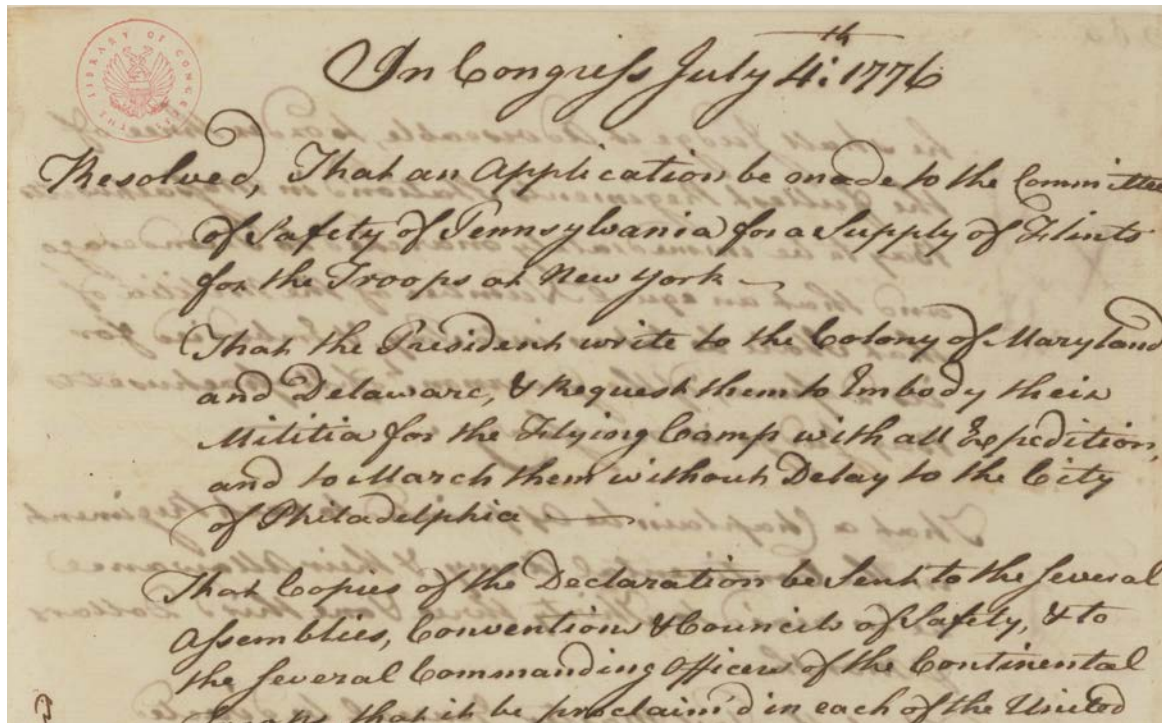 THE LIBRARY OF CONGRESS
In Congress July 4th: 1776
Resolved, That an Application be made to the Committee
of Safety of Pennsylvania for a Supply of Flints
for the Troops at New York
That the President write to the Colony of Maryland
and Delaware, & Request them to Imbody their
Militia for the Flying Camp with all Expedition,
and to March them without Delay to the City
of Philadelphia
That Copies of the Declaration be sent to the several
Assemblies, Conventions & Councils of Safety, & to
the several Commanding Officers of the Continental
Troops that it be proclaim'd in each of the United